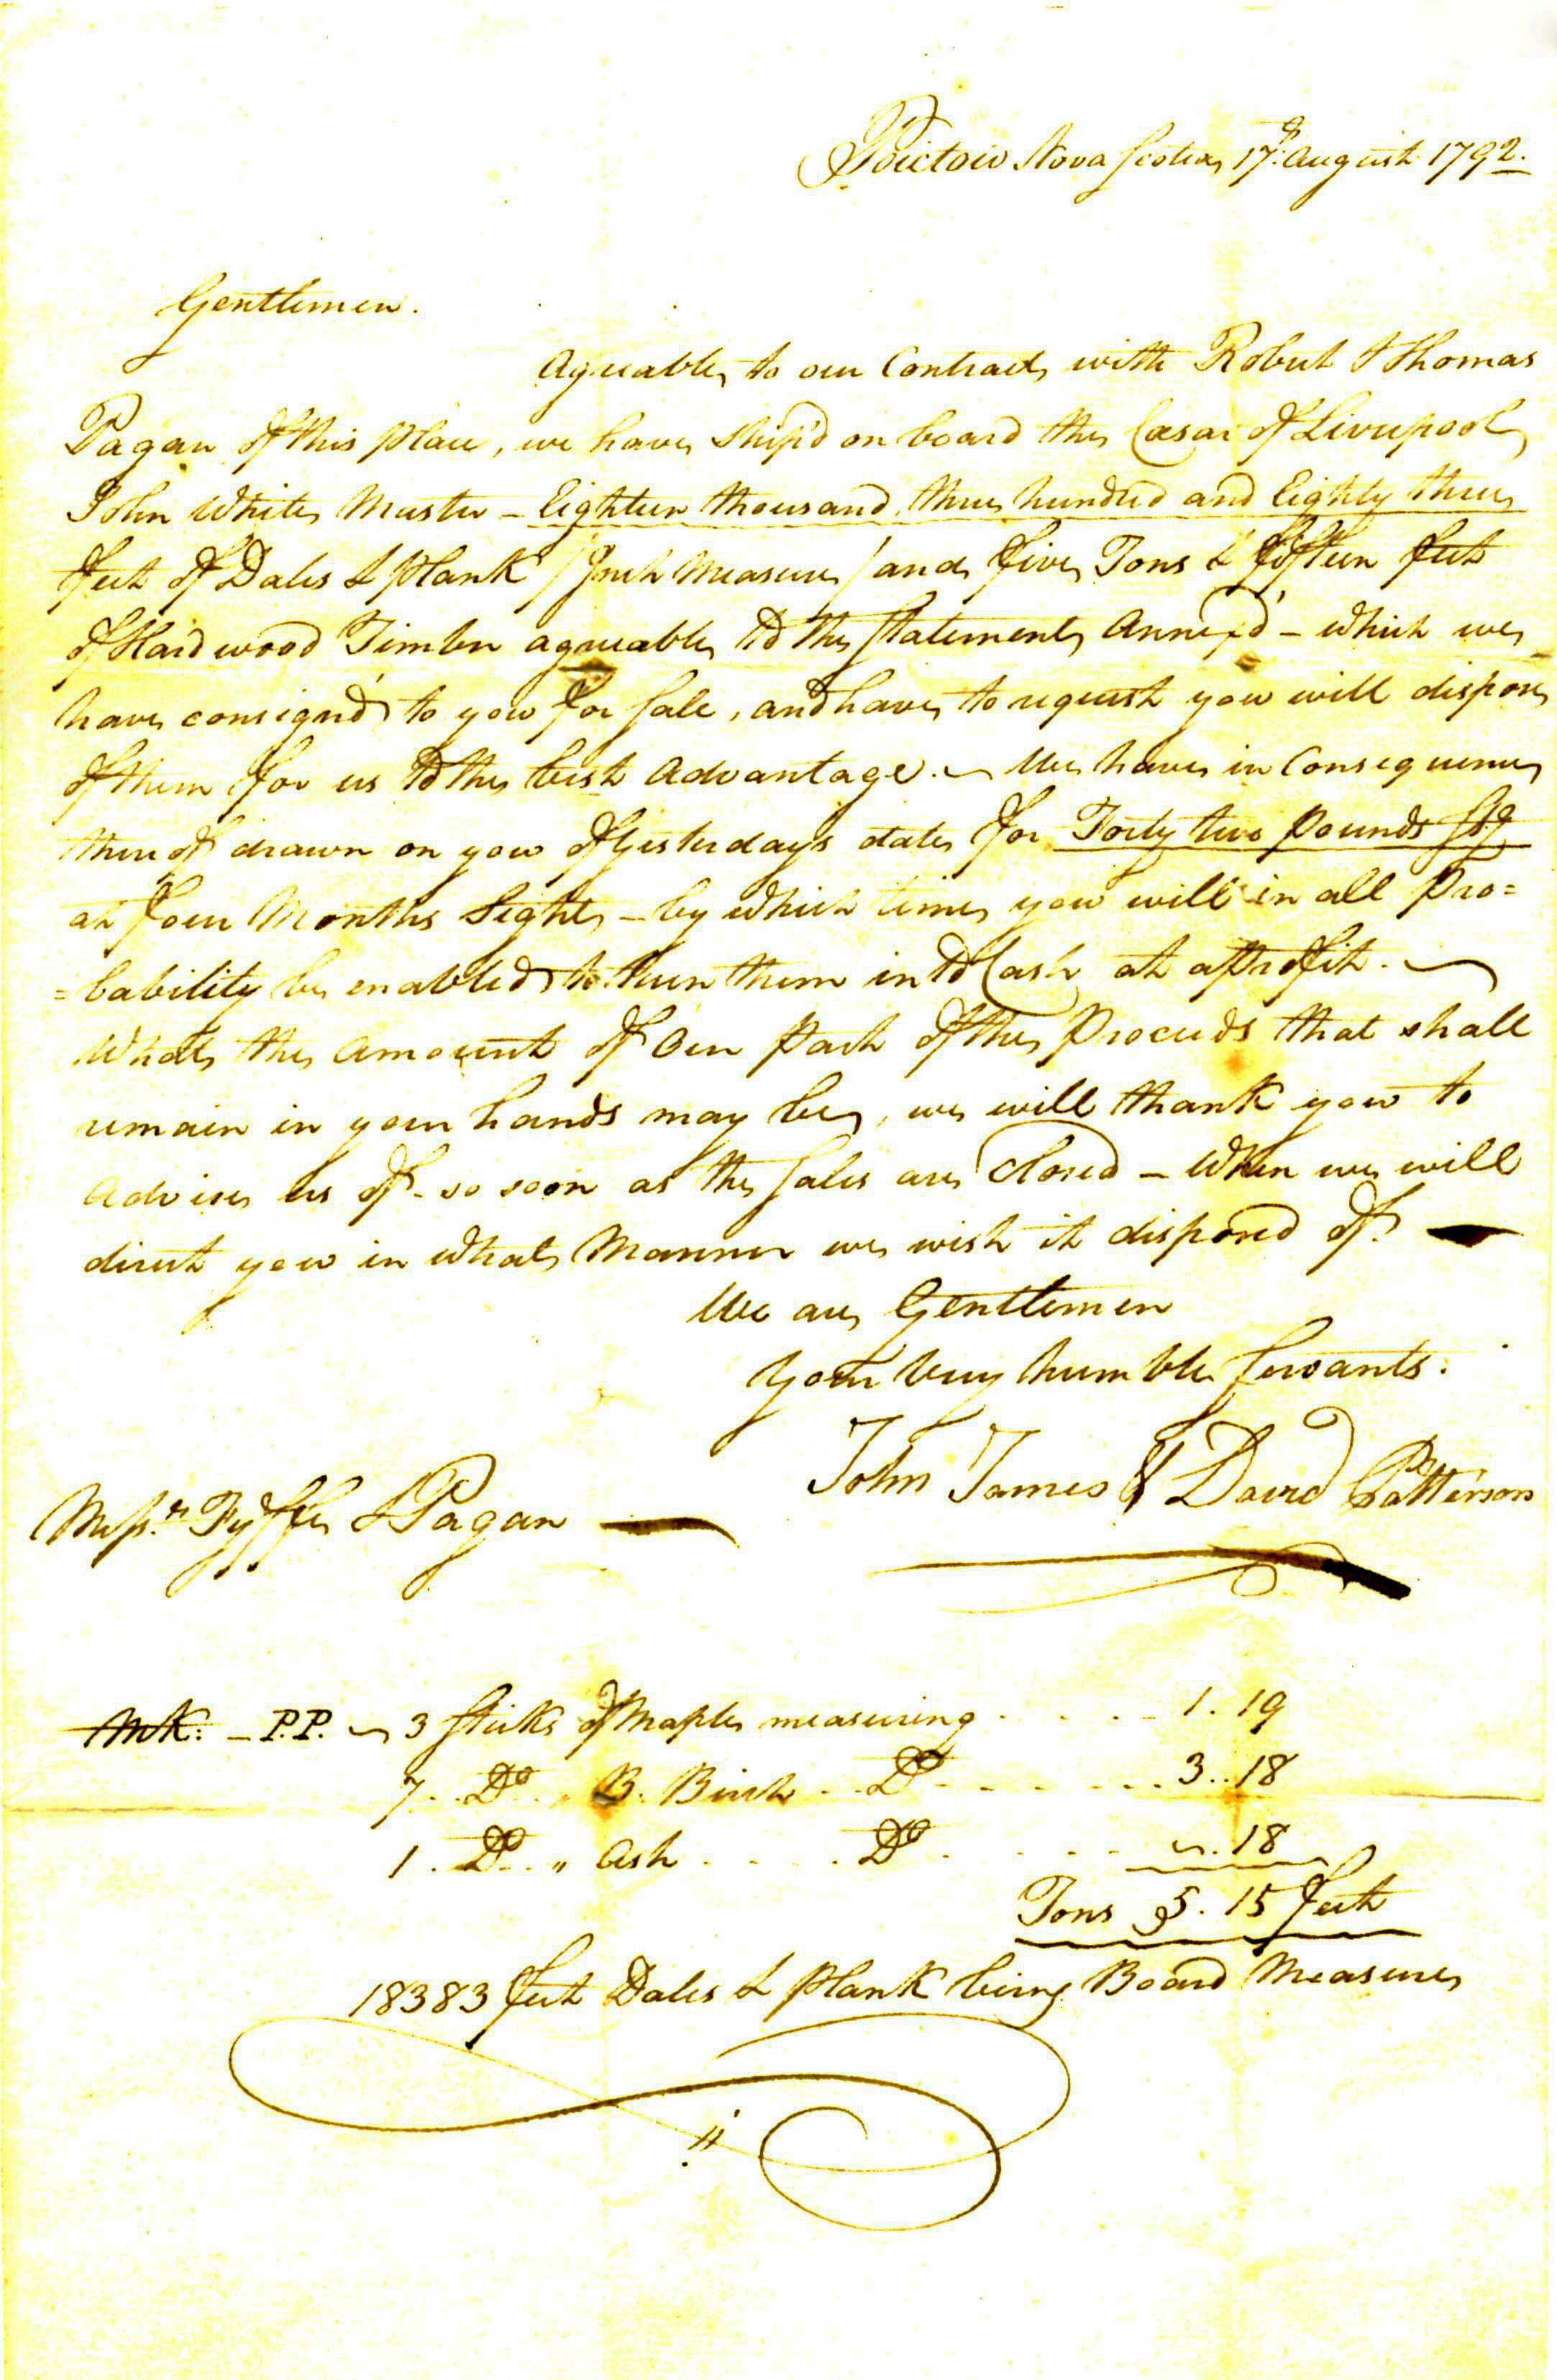 Pictou Nova Scotia 17th August 1792.
Gentlemen.
Agreeable to our Contract with Robert & Thomas
Pagan of this place, we have Ship'd on board the Cæsar of Liverpool
John White Master – Eighteen thousand three hundred and Eighty three
feet of Dales & Plank / Inch Measure / and five Tons & fifteen feet
of Hardwood Timber agreeable to the Statement Annex'd – which we
have consign'd to you for Sale, and have to request you will dispose
of them for us to the best Advantage. – We have in Consequence
thereof drawn on you of Yesterday's date for Forty two Pounds Stg
at four Months Sight – by which time you will in all Pro=
=bability be enabled to turn them into Cash at a Profit. –
What the Amount of Our Part of the Proceeds that shall
remain in your hands may be, we will thank you to
Advise us of – so soon as the Sales are Closed – When we will
direct you in what Manner we wish it disposed of. –
We are Gentlemen
Your very humble Servants.
John James & David Patterson
Messrs Fyffe & Pagan
Mk: – P.P. – 3 Sticks of Maple measuring . . . . – 1 . 19
7 . . Do . . „ B. Birch . . Do – . . – . . . – 3 . . 18
1 . Do . . „ Ash . . . . Do . . . . . ~ . 18
Tons 5 . 15 feet
18383 feet Dales & Plank being Board Measure